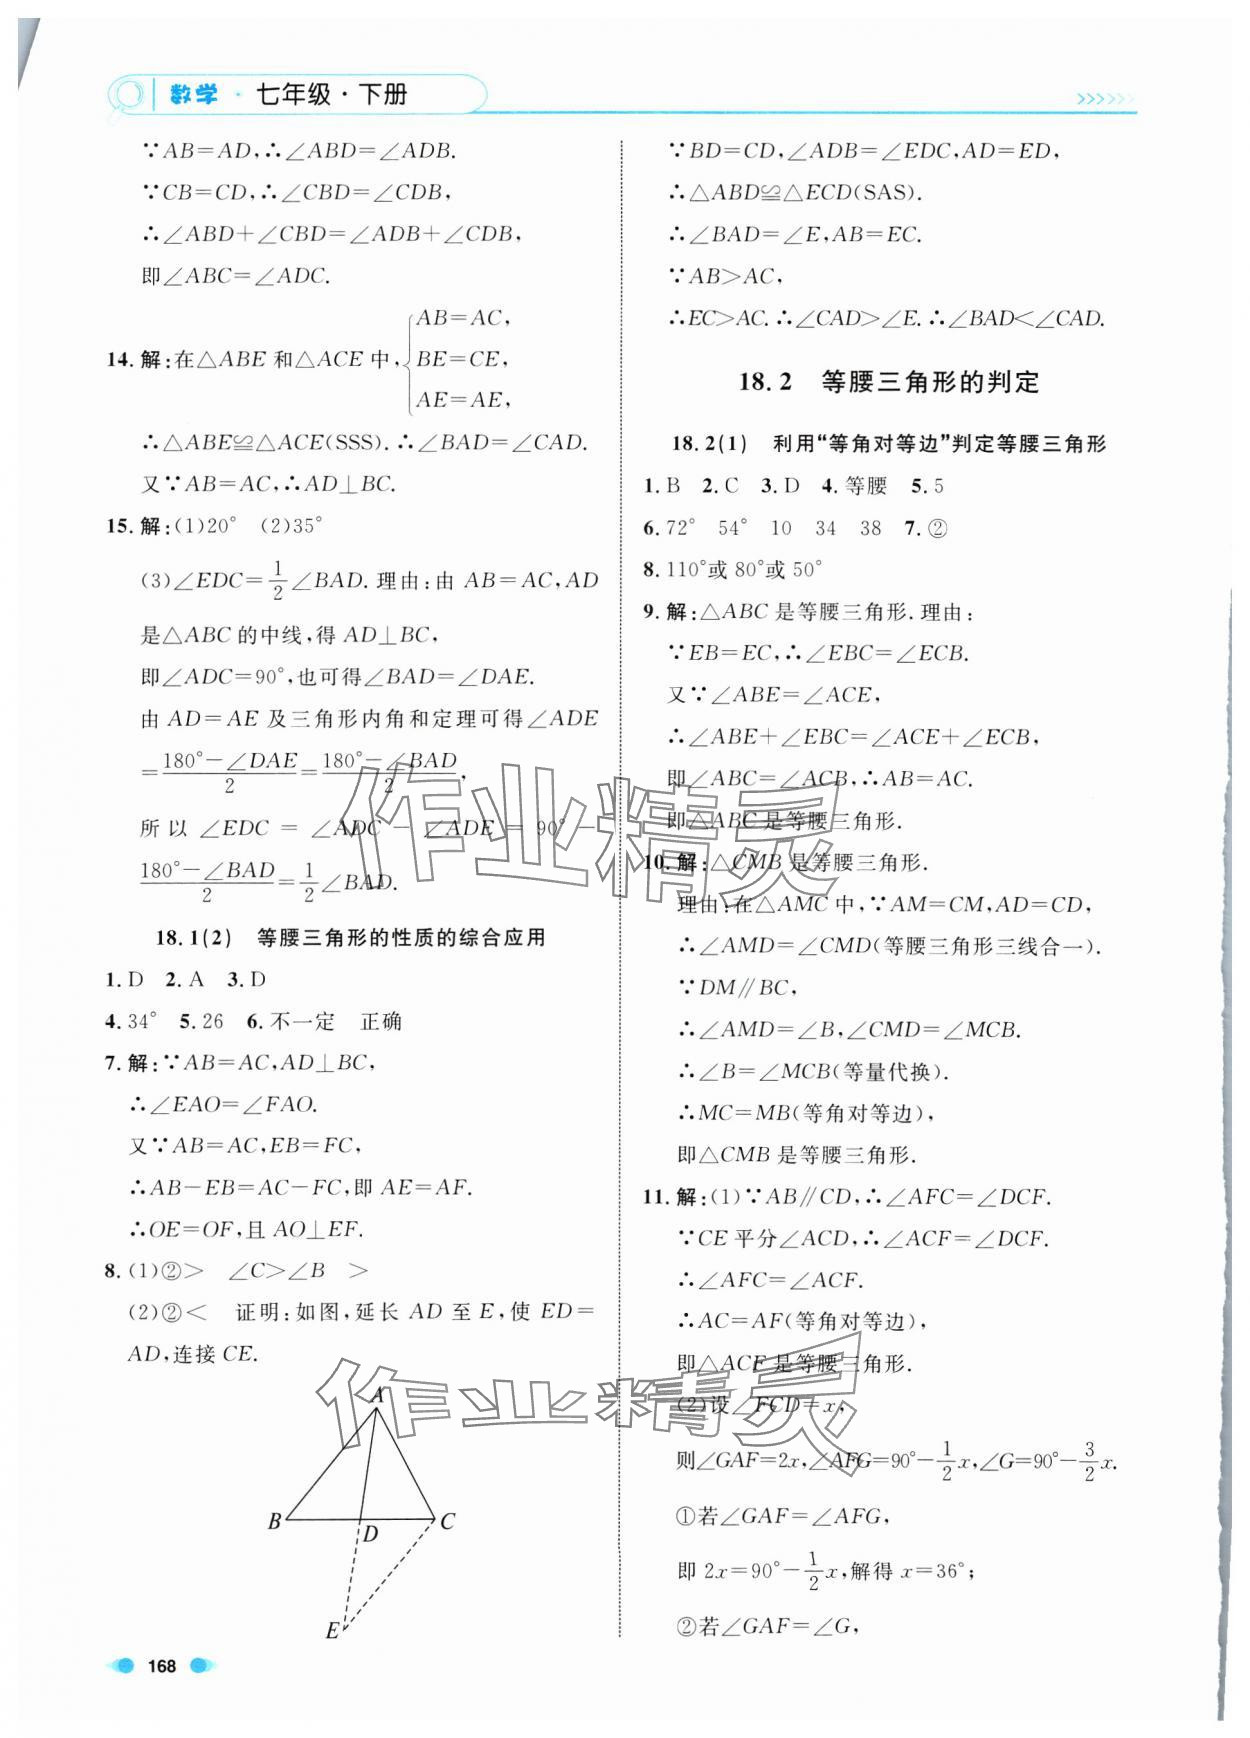 数学 · 七年级 · 下册
∵AB=AD,∴∠ABD=∠ADB.
∵CB=CD,∴∠CBD=∠CDB,
∴∠ABD+∠CBD=∠ADB+∠CDB,
即∠ABC=∠ADC.
14. 解:在△ABE 和△ACE 中,{AB=AC,
BE=CE,
AE=AE,
∴△ABE≌△ACE(SSS).∴∠BAD=∠CAD.
又∵AB=AC,∴AD⊥BC.
15. 解:(1)20° (2)35°
(3)∠EDC=1/2∠BAD.理由:由 AB=AC,AD
是△ABC 的中线,得 AD⊥BC,
即∠ADC=90°,也可得∠BAD=∠DAE.
由 AD=AE 及三角形内角和定理可得∠ADE
=(180°-∠DAE)/2=(180°-∠BAD)/2,
所以∠EDC=∠ADC-∠ADE=90°-
(180°-∠BAD)/2=1/2∠BAD.
18.1(2) 等腰三角形的性质的综合应用
1. D 2. A 3. D
4. 34° 5. 26 6. 不一定 正确
7. 解:∵AB=AC,AD⊥BC,
∴∠EAO=∠FAO.
又∵AB=AC,EB=FC,
∴AB-EB=AC-FC,即 AE=AF.
∴OE=OF,且 AO⊥EF.
8. (1)②> ∠C>∠B >
(2)②< 证明:如图,延长 AD 至 E,使 ED=
AD,连接 CE.
A
B
D
C
E
168
∵BD=CD,∠ADB=∠EDC,AD=ED,
∴△ABD≌△ECD(SAS).
∴∠BAD=∠E,AB=EC.
∵AB>AC,
∴EC>AC.∴∠CAD>∠E.∴∠BAD<∠CAD.
18.2 等腰三角形的判定
18.2(1) 利用“等角对等边”判定等腰三角形
1. B 2. C 3. D 4. 等腰 5. 5
6. 72° 54° 10 34 38 7. ②
8. 110°或 80°或 50°
9. 解:△ABC 是等腰三角形.理由:
∵EB=EC,∴∠EBC=∠ECB.
又∵∠ABE=∠ACE,
∴∠ABE+∠EBC=∠ACE+∠ECB,
即∠ABC=∠ACB,∴AB=AC.
即△ABC 是等腰三角形.
10. 解:△CMB 是等腰三角形.
理由:在△AMC 中,∵AM=CM,AD=CD,
∴∠AMD=∠CMD(等腰三角形三线合一).
∵DM∥BC,
∴∠AMD=∠B,∠CMD=∠MCB.
∴∠B=∠MCB(等量代换).
∴MC=MB(等角对等边),
即△CMB 是等腰三角形.
11. 解:(1)∵AB∥CD,∴∠AFC=∠DCF.
∵CE 平分∠ACD,∴∠ACF=∠DCF.
∴∠AFC=∠ACF.
∴AC=AF(等角对等边),
即△ACF 是等腰三角形.
(2)设∠FCD=x,
则∠GAF=2x,∠AFG=90°-1/2x,∠G=90°-3/2x.
①若∠GAF=∠AFG,
即 2x=90°-1/2x,解得 x=36°;
②若∠GAF=∠G,
作业精灵
作业精灵